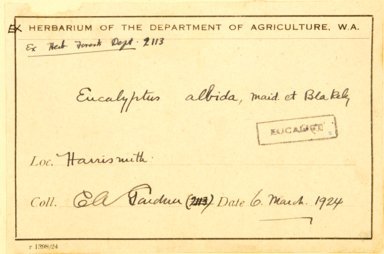 EX HERBARIUM OF THE DEPARTMENT OF AGRICULTURE, W.A.
Ex Herb Forests Dept. 2113
Eucalyptus albida, Maid. et Blakely
Loc. Harrismith
Coll. Gardner (2113) Date 6. March. 1924
r 1398/24